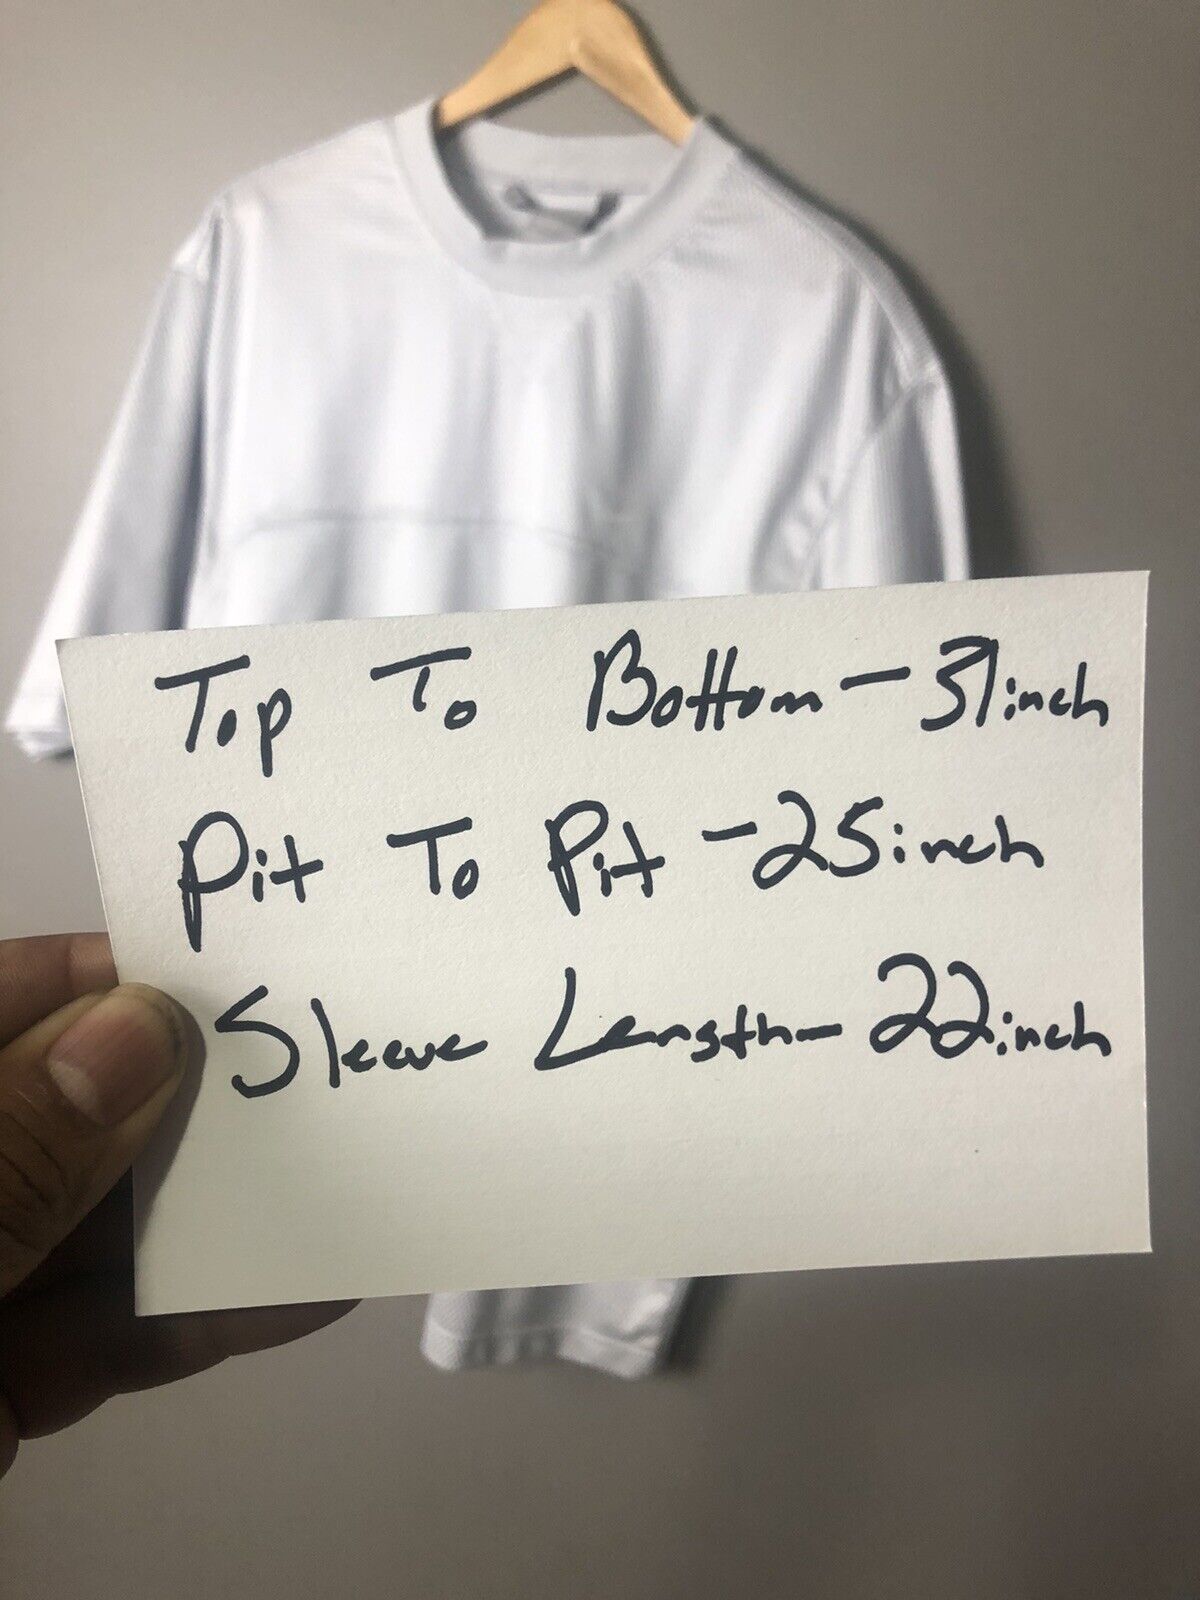 Top To Bottom - 31inch
Pit To Pit - 25inch
Sleeve Length - 22inch